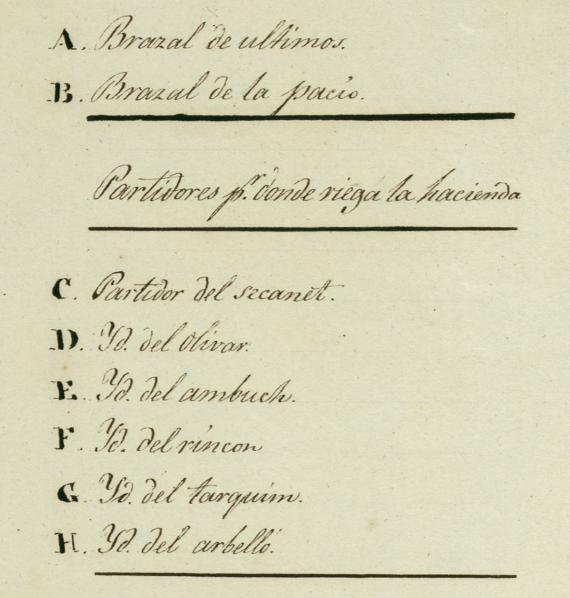 A. Brazal de ultimos.
B. Brazal de la pacio.
Partidores p.r donde riega la hacienda
C. Partidor del secanet.
D. Yd. del Olivar.
E. Yd. del ambuch.
F. Yd. del rincon
G. Yd. del tarquim.
H. Yd. del arbelló.